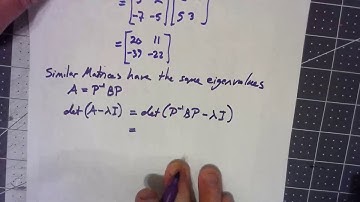 -7 -5][ 5 3
= [20 11
-39 -22]
Similar Matrices have the same eigenvalues
A = P⁻¹BP
det(A-λI) = det(P⁻¹BP-λI)
=